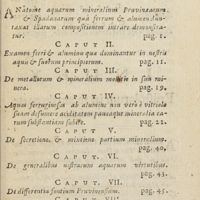 ANatome aquarum mineralium Pruvinsarum
& Spadanarum quâ ferrum & alumen dun-
taxat illarum compositionem intrare demonstra-
tur. pag. 1.
CAPUT II.
Examen ferri & aluminis quæ dominantur in nostris
aquis & fontium principiorum. pag. 11.
CAPUT III.
De metallorum & mineralium in sui
nera. pag. 19.
CAPUT IV.
Aquas ferrugineas ab alumine non verò à vitriolo
suam desumere aciditatem paucaque mineralia ea-
rum substantiam subire. pag. 22.
CAPUT V.
De secretione, & mixtione partium mineralium.
pag. 40.
CAPUT. VI.
De generalibus nostrarum aquarum virtutibus.
pag. 43.
CAPUT. VII.
De differentiis fontium Pruvinensium. pag. 45.